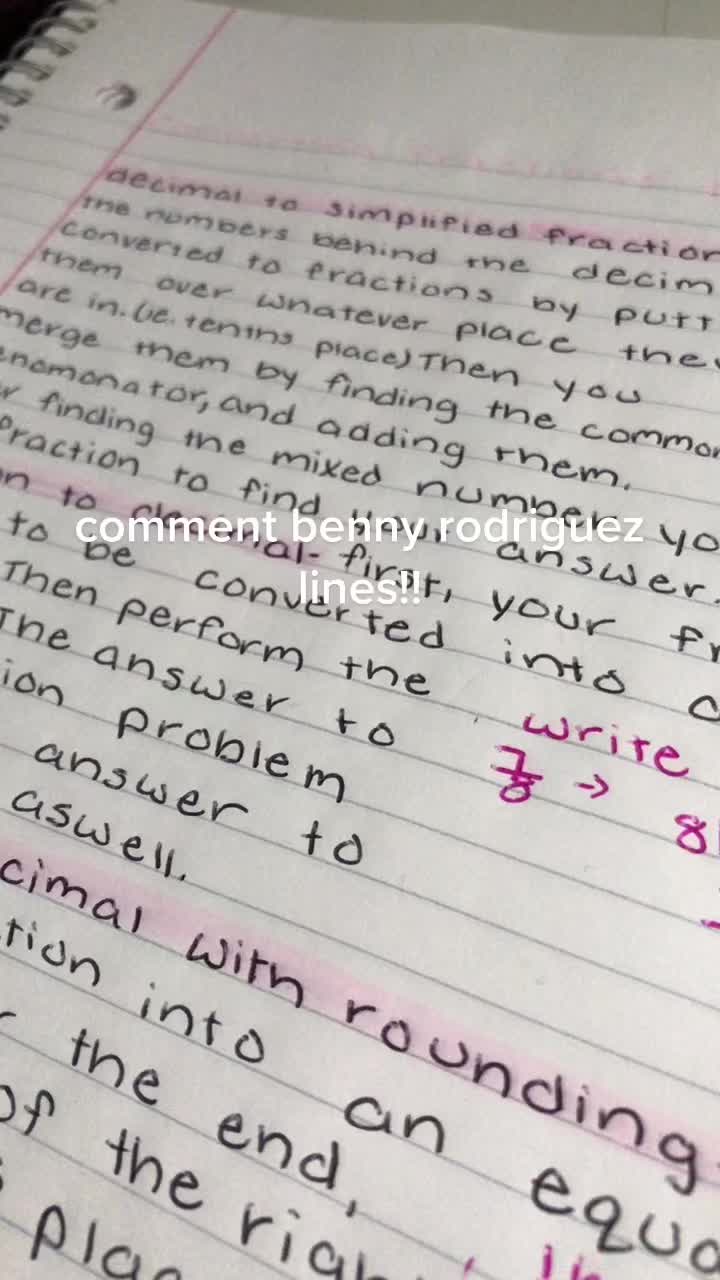 decimal to simplified fraction
the numbers behind the decim
converted to fractions by putt
them over whatever place they
are in. (ie. tenths place) Then you
merge them by finding the common
enomonator, and adding them.
r finding the mixed number, yo
fraction to find your answer.
on to decimal- first, your fr
comment benny rodriguez
lines!!
to be converted into a
Then perform the
The answer to
ion problem
answer to
aswell.
write
7/8 → 8
cimal with rounding-
tion into an equa
r the end,
of the righ
plac